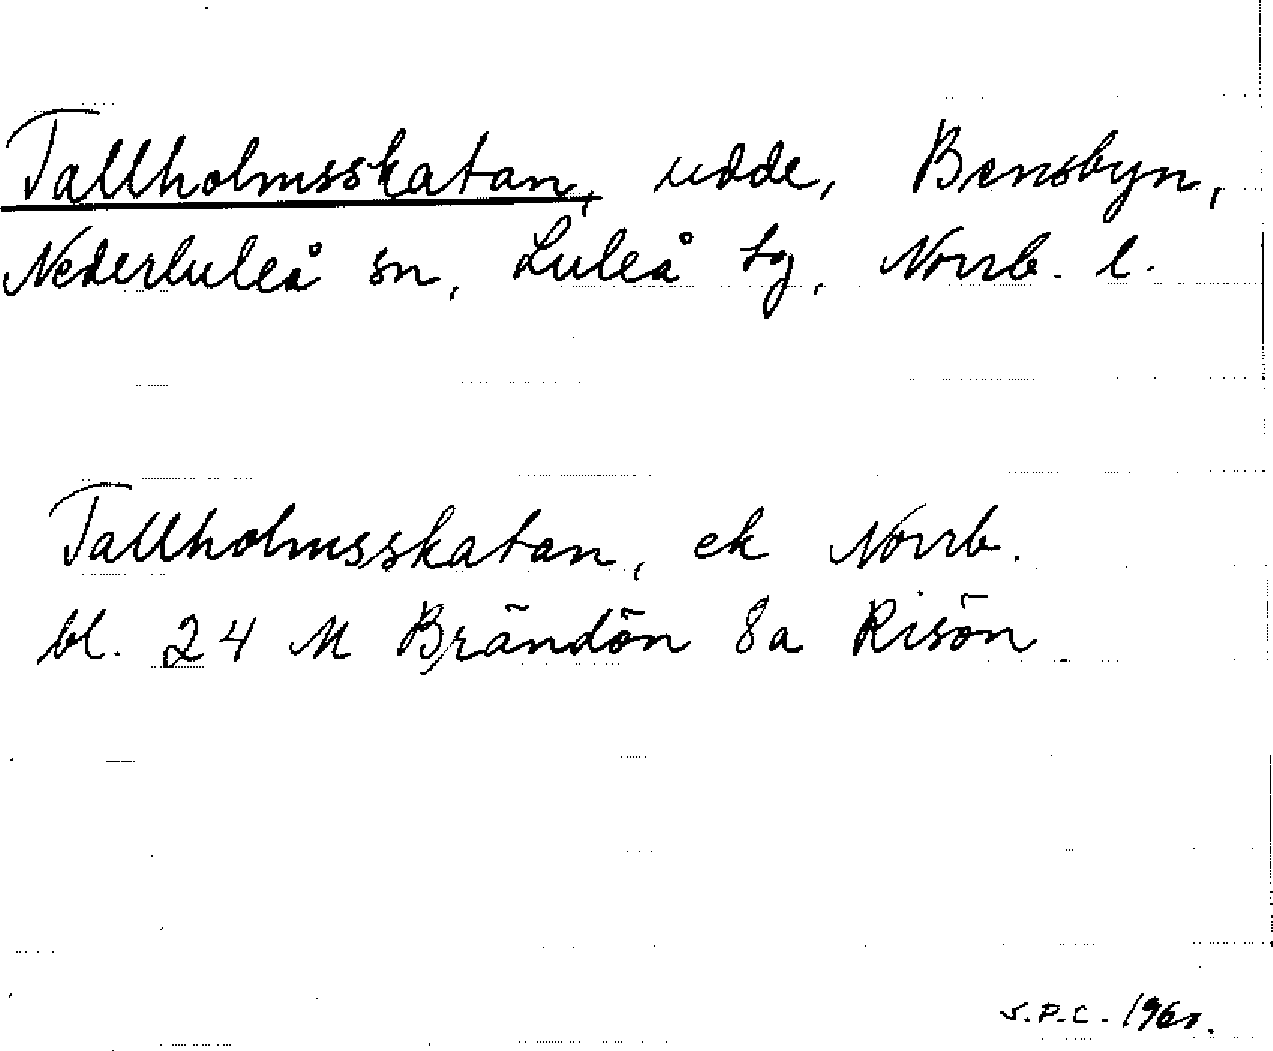 Tallholmsskatan, udde, Bensbyn,
Nederluleå sn, Luleå tg, Norrb. l.
Tallholmsskatan, ek Norrb.
bl. 24 M Brändön 8a Risön